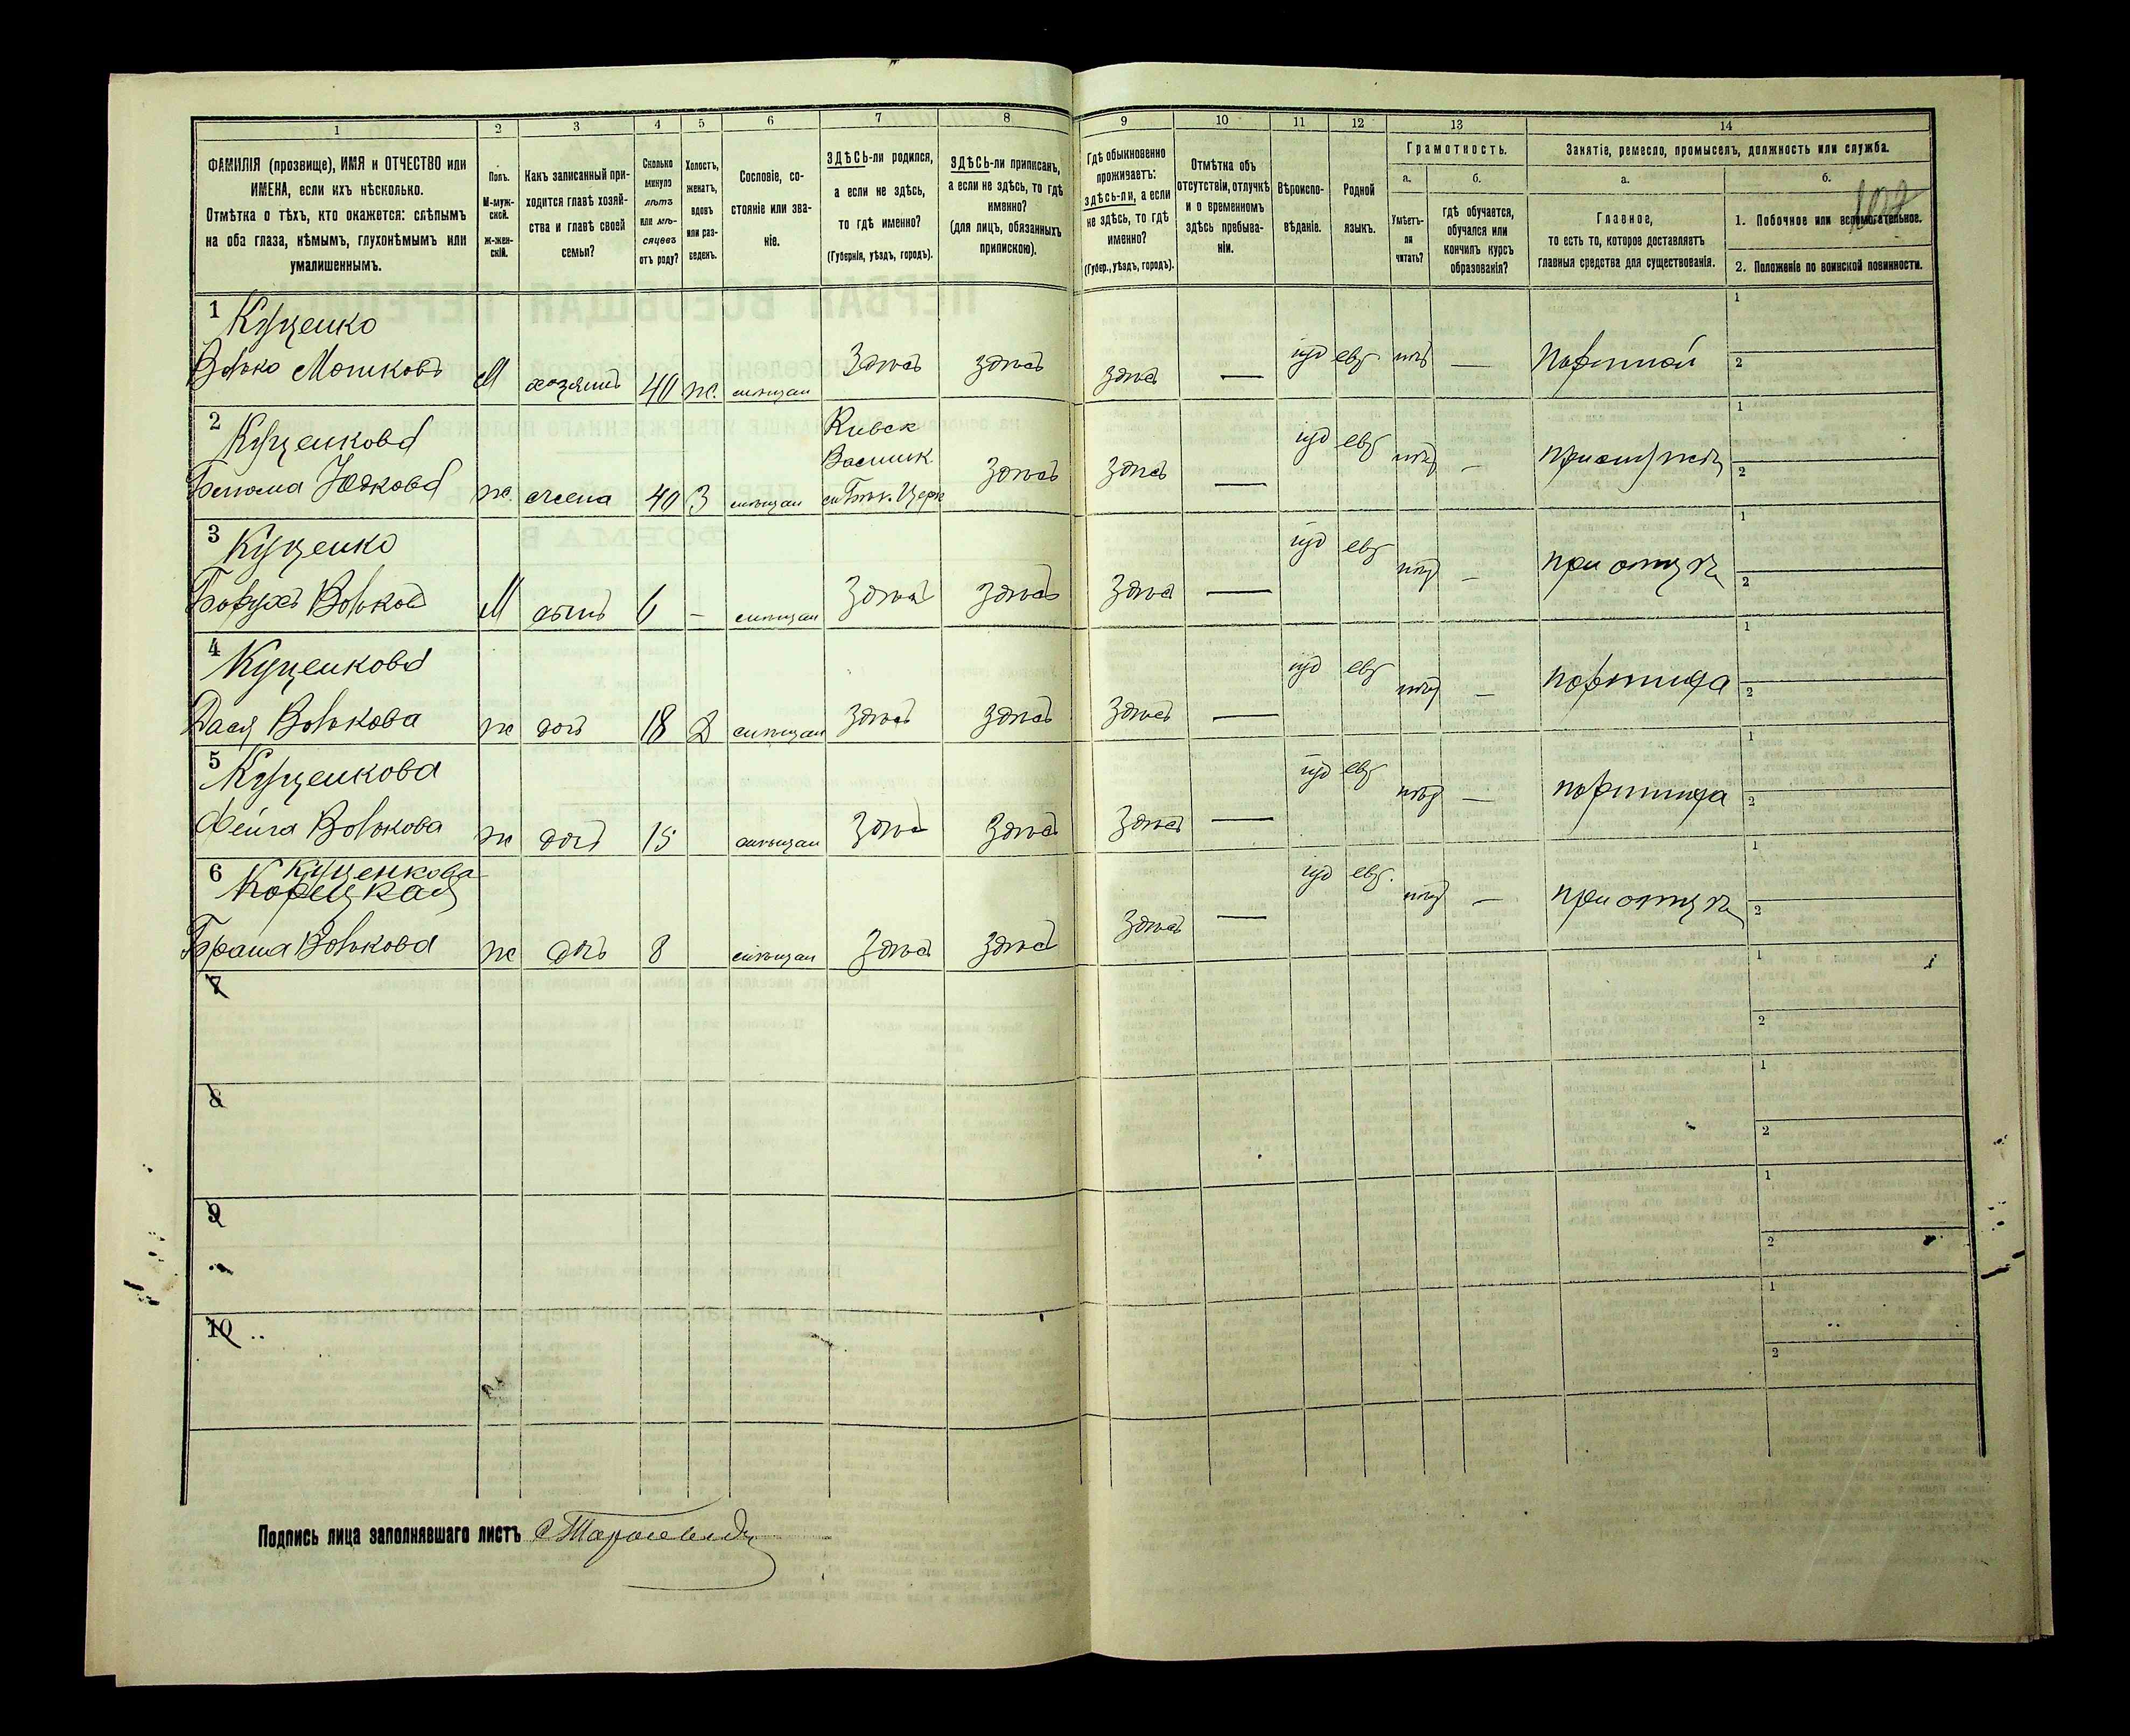 1
2
3
4
5
6
7
8
ФАМИЛІЯ (прозвище), ИМЯ и ОТЧЕСТВО или
ИМЕНА, если ихъ нѣсколько.
Отмѣтка о тѣхъ, кто окажется: слѣпымъ
на оба глаза, нѣмымъ, глухонѣмымъ или
умалишеннымъ.
Полъ.
М-муж-
ской.
Ж-жен-
скій.
Какъ записанный при-
ходится главѣ хозяй-
ства и главѣ своей
семьи?
Сколько
минуло
лѣтъ
или мѣ-
сяцевъ
отъ роду?
Холостъ,
женатъ,
вдовъ
или раз-
веденъ.
Сословіе, со-
стояніе или зва-
ніе.
ЗДѢСЬ-ли родился,
а если не здѣсь,
то гдѣ именно?
(Губернія, уѣздъ, городъ).
ЗДѢСЬ-ли приписанъ,
а если не здѣсь, то гдѣ
именно?
(для лицъ, обязанныхъ
припискою).
9
10
11
12
13
14
Гдѣ обыкновенно
проживаетъ:
здѣсь-ли, а если
не здѣсь, то гдѣ
именно?
(Губер., уѣздъ, городъ).
Отмѣтка объ
отсутствіи, отлучкѣ
и о временномъ
здѣсь пребыва-
ніи.
Вѣроиспо-
вѣданіе.
Родной
языкъ.
Грамотность.
а.
б.
Умѣетъ-
ли
читать?
гдѣ обучается,
обучался или
кончилъ курсъ
образованія?
Занятіе, ремесло, промыселъ, должность или служба.
а.
б.
Главное,
то есть то, которое доставляетъ
главныя средства для существованія.
1. Побочное или вспомогательное.
2. Положеніе по воинской повинности.
1 Куценко
Волько Мошковъ М хозяинъ 40 ж. мѣщан Здѣсь здѣсь здѣсь — іуд евр нѣтъ — Портной 1 2
2 Куценкова Кіевск
Васильк
Юдкова ж. жена 40 З мѣщан Бѣл. Церк здѣсь здѣсь — іуд евр нѣтъ — при мужѣ 1 2
3 Куценко
Борухъ Вольковъ М сынъ 6 – мѣщан Здѣсь здѣсь здѣсь — іуд евр нѣтъ — при отцѣ 1 2
4 Куценкова
Волькова ж дочь 18 Д мѣщан здѣсь здѣсь здѣсь — іуд евр нѣтъ — портниха 1 2
5 Куценкова
Фейга Волькова ж дочь 15 мѣщан здѣсь здѣсь здѣсь — іуд евр нѣтъ — портниха 1 2
6 Куценкова
Корецкая
Волькова ж дочь 8 мѣщан здѣсь здѣсь здѣсь — іуд евр. нѣтъ — при отцѣ 1 2
7 1 2
8 1 2
9 1 2
10 1 2
Подпись лица заполнявшаго листъ